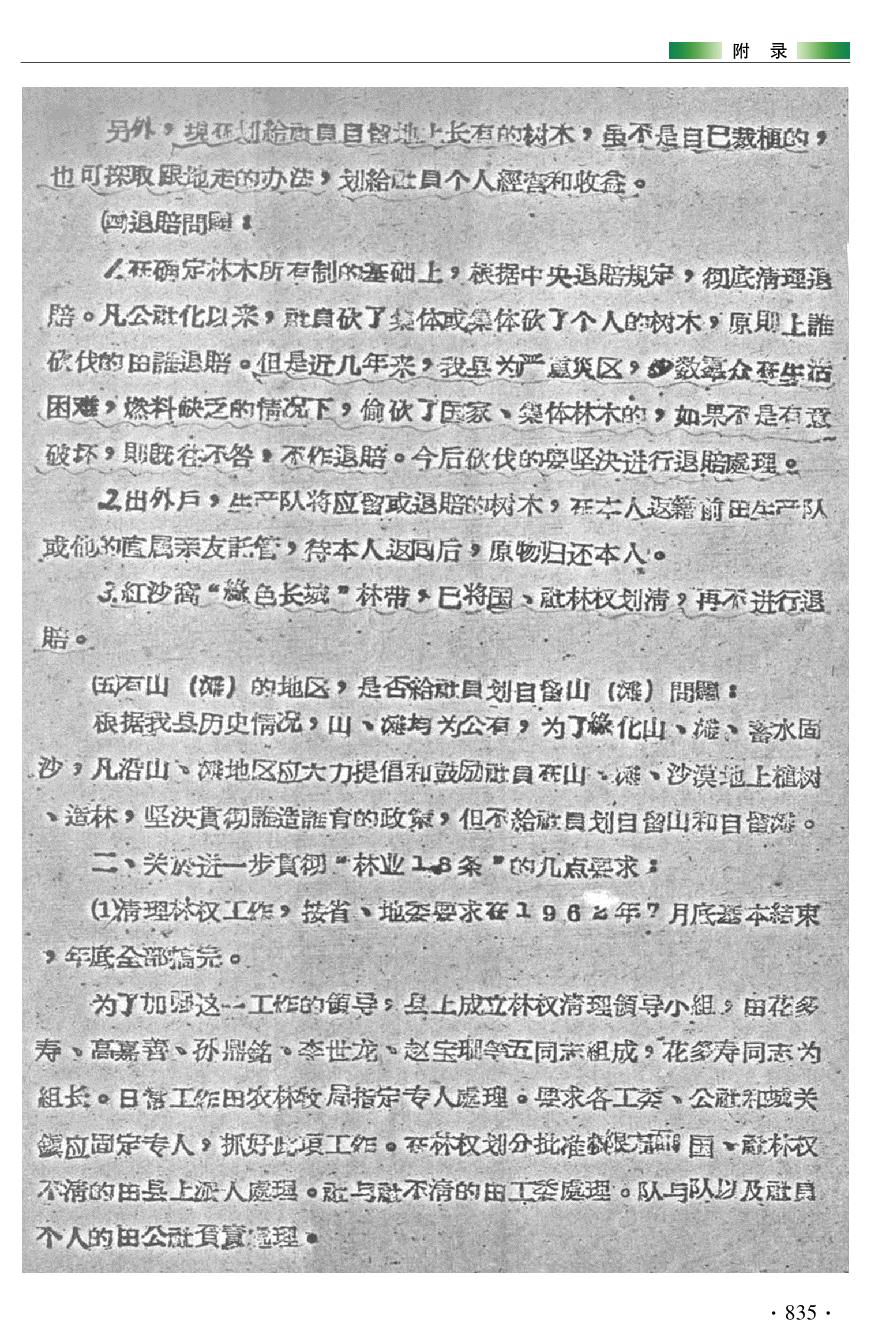 附 录
另外，現在划給社員自留地上长有的树木，虽不是自己栽植的，
也可採取跟地走的办法，划給社員个人經营和收益。
㈣退賠問題：
1.在确定林木所有制的基础上，根据中央退賠規定，彻底清理退
賠。凡公社化以来，社員砍了集体或集体砍了个人的树木，原則上誰
砍伐的由誰退賠。但是近几年来，我县为严重災区，少数羣众在生活
困难，燃料缺乏的情况下，偷砍了国家、集体林木的，如果不是有意
破坏，則既往不咎，不作退賠。今后砍伐的要坚决进行退賠處理。
2.出外戶，生产队将应留或退賠的树木，在本人返籍前由生产队
或他的直属亲友託管，待本人返回后，原物归还本人。
3.紅沙窩“綠色长城”林带，已将国、社林权划清，再不进行退
賠。
㈤有山（滩）的地区，是否給社員划自留山（滩）問題：
根据我县历史情况，山、滩均为公有，为了綠化山、滩、蓄水固
沙，凡沿山、滩地区应大力提倡和鼓励社員在山、滩、沙漠地上植树
、造林，坚决貫彻誰造誰有的政策，但不給社員划自留山和自留滩。
二、关於进一步貫彻“林业18条”的几点要求：
⑴清理林权工作，按省、地委要求在1962年7月底基本結束
，年底全部搞完。
为了加强这一工作的領导，县上成立林权清理領导小組，由花多
寿、高嘉善、孙鼎銘、李世龙、赵宝珊等五同志組成，花多寿同志为
組长。日常工作由农林牧局指定专人處理。要求各工委、公社和城关
鎮应固定专人，抓好此項工作。在林权划分批准权限方面：国、社林权
不清的由县上派人處理。社与社不清的由工委處理。队与队以及社員
个人的由公社負責處理。
·835·